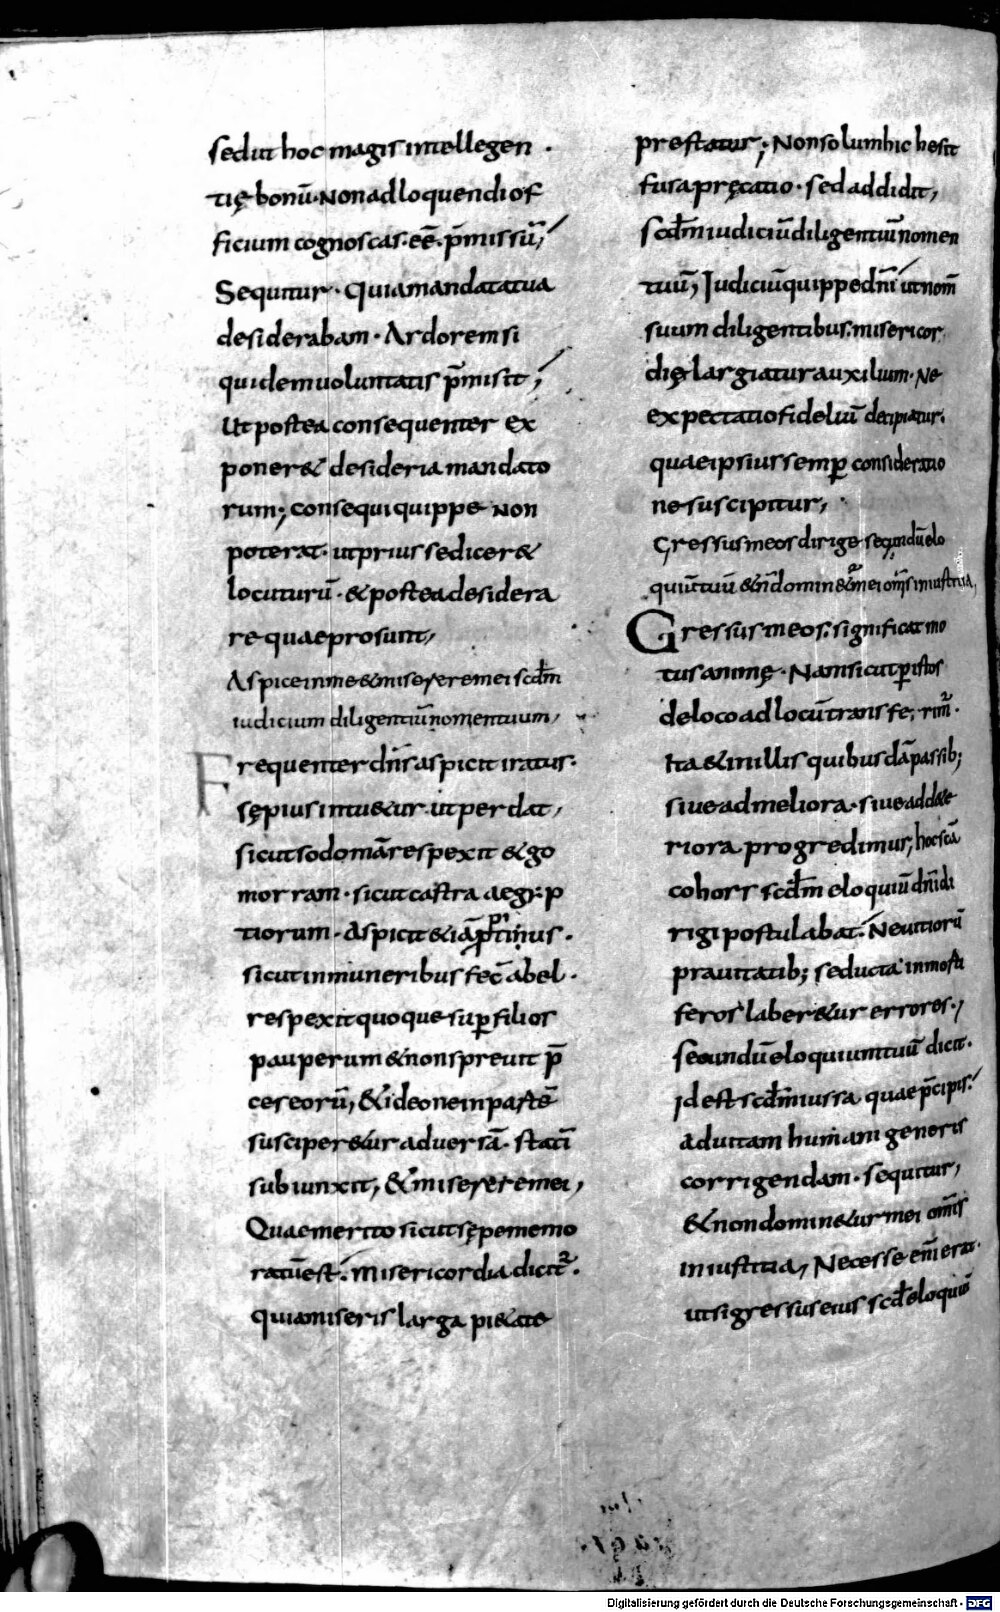 sed ut hoc magis intellegen ·
tię bonū · Non ad loquendi of
ficium cognoscas · eē · p̄missū;
Sequitur · Quia mandata tua
desiderabam · Ardorem si
quidem uoluntatis p̄misit;
Ut postea consequenter ex
poner& desideria mandato
rum; consequi quippe non
poterat · ut prius se dicer&
locuturū · & postea desidera
re quae prosunt;
Aspice in me & miserere mei scd̄m
iudicium diligentiū nomen tuum;
Frequenter dn̄s aspicit iratus ·
sępius intu&ur · ut perdat;
sicut sodomā respexit & go
morram · sicut castra aegyp
tiorum · Aspicit &iā
sicut in muneribus fec̄ abel ·
respexit quoque sup̄ filios
pauperum & non spreuit p̄
ces eorū; & ideo ne in partē
susciper&ur aduersā · statī
subiunxit; & miserere mei;
Quae merito sicut sępe memo
ratū est · Misericordia dicit᷑ ·
quia miseris larga pi&ate
prestatur; Non solum hic hesit
fusa pręcatio · sed addidit;
scd̄m iudiciū diligentiū nomen
tuū; Iudiciū quippe dn̄i ut nom̄
suum diligentibus · misericor
dię largiatur auxilium · Ne
expectatio fideliū decipiatur ·
quae ipsius semp̄ consideratio
ne suscipitur;
Gressus meos dirige secundū elo
quiū tuū & n̄ domin&᷑ mei om̄s iniustitia;
Gressus meos · significat mo
tus animę · Nam sicut p̄ istos
de loco ad locū transferim᷑ ·
Ita & in illis quibusdā passib;
siue ad meliora · siue ad d&e
riora progredimur; hoc scā
cohors scd̄m eloquiū dn̄i di
rigi postulabat · Ne uitiorū
prauitatib; seducta in morti
feros laber&ur errores ·;
secundū eloquium tuū dicit ·
id est scd̄m iussa quae p̄cipis ·
ad uitam humani generis
corrigendam · sequitur;
& non domin&ur mei om̄is
iniustitia; Necesse enī erat ·
ut si gressus eius scd̄ eloquiū
Digitalisierung gefördert durch die Deutsche Forschungsgemeinschaft · DFG